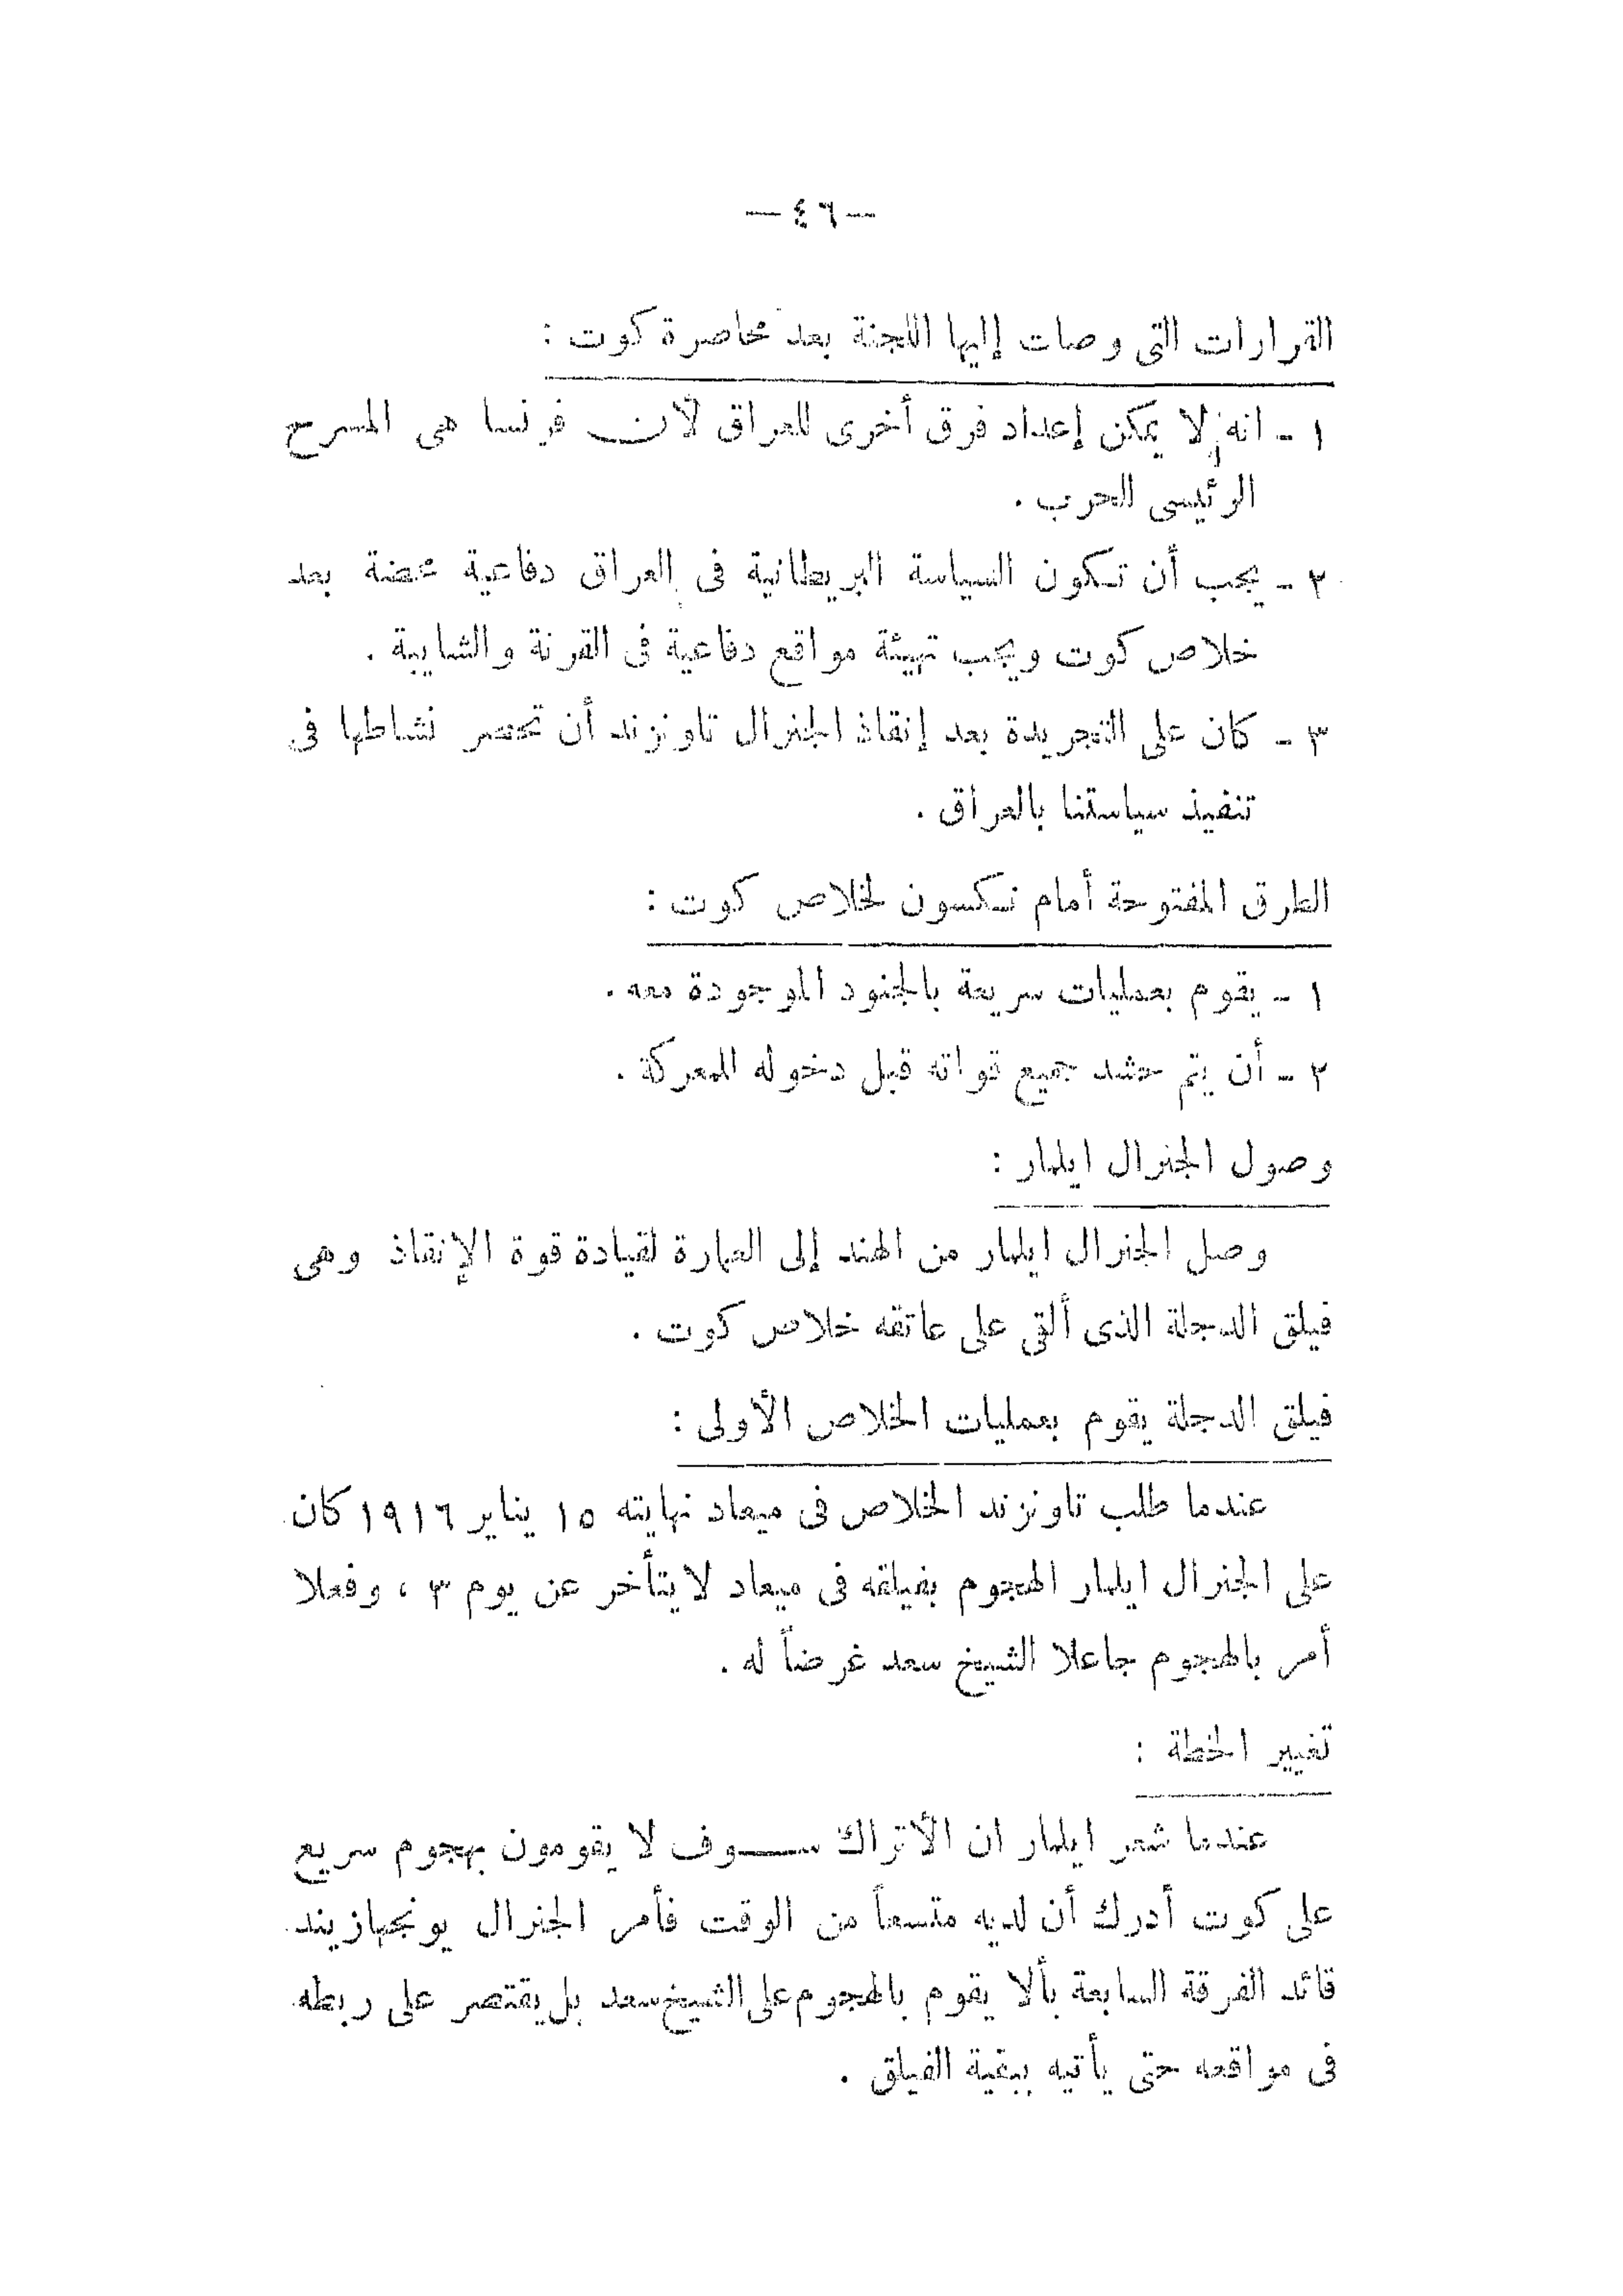 —٤٦—
القرارات التى وصلت إليها اللجنة بعد محاصرة كوت :
١ - انه لا يمكن إعداد فرق أخرى للعراق لأن فرنسا هى المسرح
الرئيسى للحرب .
٢ - يجب أن تكون السياسة البريطانية فى العراق دفاعية محضة بعد
خلاص كوت ويجب تهيئة مواقع دفاعية فى القرنة والشايبة .
٣ - كان على التجريدة بعد إنقاذ الجنرال تاونزند أن تحصر نشاطها فى
تنفيذ سياستنا بالعراق .
الطرق المفتوحة أمام نكسون لخلاص كوت :
١ - يقوم بعمليات سريعة بالجنود الموجودة معه .
٢ - أن يتم حشد جميع قواته قبل دخوله المعركة .
وصول الجنرال ايلمار :
وصل الجنرال ايلمار من الهند إلى العمارة لقيادة قوة الإنقاذ وهى
فيلق الدجلة الذى ألقى على عاتقه خلاص كوت .
فيلق الدجلة يقوم بعمليات الخلاص الأولى :
عندما طلب تاونزند الخلاص فى ميعاد نهايته ١٥ يناير ١٩١٦ كان
على الجنرال ايلمار الهجوم بفيلقه فى ميعاد لا يتأخر عن يوم ٣ ، وفعلا
أمر بالهجوم جاعلا الشيخ سعد غرضاً له .
تغيير الخطة :
عندما شعر ايلمار ان الأتراك سوف لا يقومون بهجوم سريع
على كوت أدرك أن لديه متسعاً من الوقت فأمر الجنرال يونجهازبند
قائد الفرقة السابعة بألا يقوم بالهجوم على الشيخ سعد بل يقتصر على ربطه
فى مواقعه حتى يأتيه ببقية الفيلق .